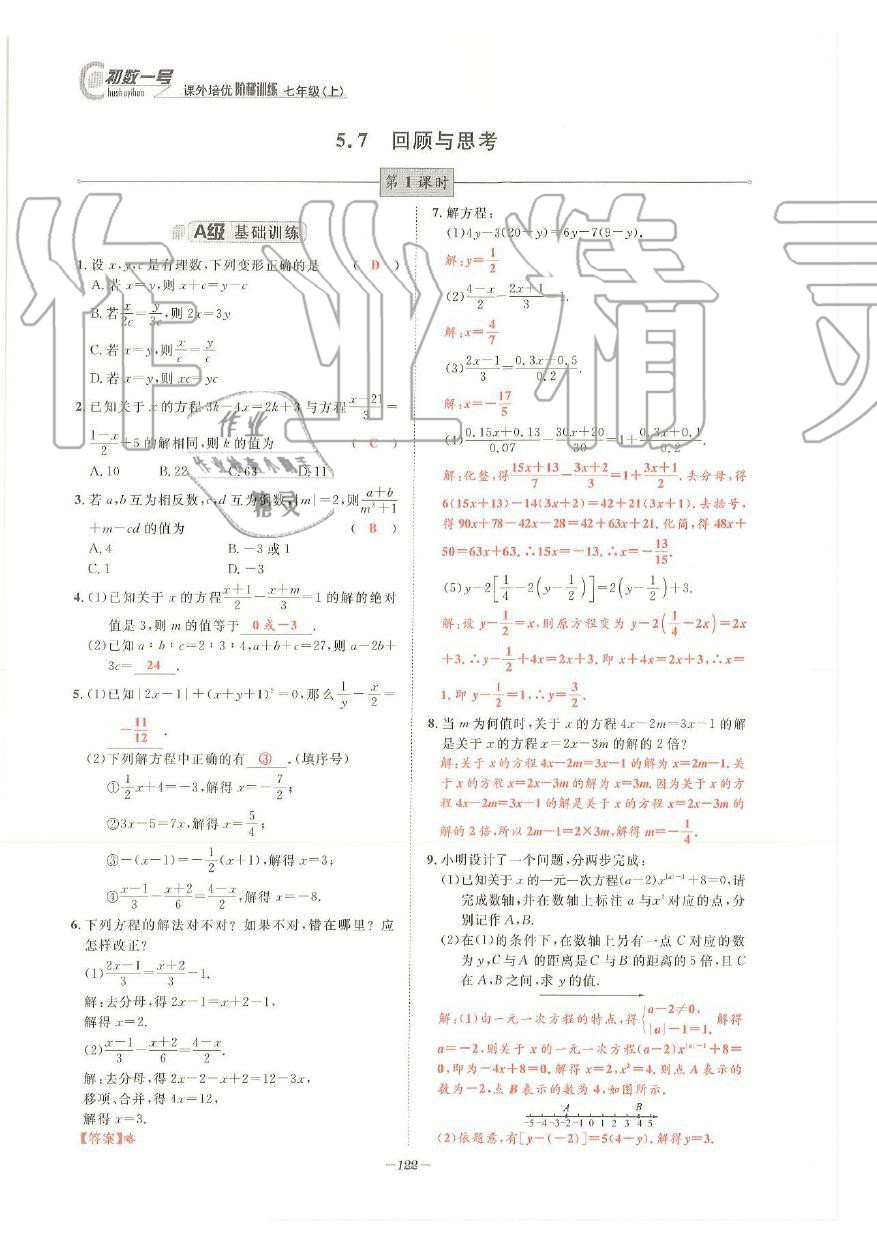 初数一号
chushuyihao
课外培优 阶梯训练 七年级(上)
5.7 回顾与思考
第1课时
A级 基础训练
1.设x,y,c是有理数,下列变形正确的是 ( D )
A.若x=y,则x+c=y-c
B.若x/2c=y/3c,则2x=3y
C.若x=y,则x/c=y/c
D.若x=y,则xc=yc
2.已知关于x的方程3k-4x=2k+3与方程(x-21)/3=
(1-x)/2+5的解相同,则k的值为 ( C )
A.10 B.22 C.63 D.11
3.若a,b互为相反数,c,d互为倒数,|m|=2,则(a+b)/(m³+1)
+m-cd的值为 ( B )
A.4 B.-3或1
C.1 D.-3
4.(1)已知关于x的方程(x+1)/2-(x+m)/3=1的解的绝对
值是3,则m的值等于 0或-3 .
(2)已知a∶b∶c=2∶3∶4,a+b+c=27,则a-2b+
3c= 24 .
5.(1)已知|2x-1|+(x+y+1)²=0,那么1/y-x/2=
-11/12 .
(2)下列解方程中正确的有 ③ .(填序号)
①1/2x+4=-3,解得x=-7/2;
②3x-5=7x,解得x=5/4;
③-(x-1)=-1/2(x+1),解得x=3;
④(x-1)/3-(x+2)/6=(4-x)/2,解得x=-8.
6.下列方程的解法对不对?如果不对,错在哪里?应
怎样改正?
(1)(2x-1)/3=(x+2)/3-1.
解:去分母,得2x-1=x+2-1,
解得x=2.
(2)(x-1)/3-(x+2)/6=(4-x)/2.
解:去分母,得2x-2-x+2=12-3x,
移项、合并,得4x=12,
解得x=3.
【答案】略
7.解方程:
(1)4y-3(20-y)=6y-7(9-y).
解:y=1/2
(2)(4-x)/2-(2x+1)/3=1.
解:x=4/7
(3)(2x-1)/3=(0.3x+0.5)/0.2.
解:x=-17/5
(4)(0.15x+0.13)/0.07-(30x+20)/30=1+(0.3x+0.1)/0.2.
解:化整,得(15x+13)/7-(3x+2)/3=1+(3x+1)/2.去分母,得
6(15x+13)-14(3x+2)=42+21(3x+1).去括号,
得90x+78-42x-28=42+63x+21.化简,得48x+
50=63x+63.∴15x=-13.∴x=-13/15.
(5)y-2[1/4-2(y-1/2)]=2(y-1/2)+3.
解:设y-1/2=x,则原方程变为y-2(1/4-2x)=2x
+3.∴y-1/2+4x=2x+3.即x+4x=2x+3,∴x=
1.即y-1/2=1,∴y=3/2.
8.当m为何值时,关于x的方程4x-2m=3x-1的解
是关于x的方程x=2x-3m的解的2倍?
解:关于x的方程4x-2m=3x-1的解为x=2m-1.关
于x的方程x=2x-3m的解为x=3m.因为关于x的方
程4x-2m=3x-1的解是关于x的方程x=2x-3m的
解的2倍,所以2m-1=2×3m,解得m=-1/4.
9.小明设计了一个问题,分两步完成:
(1)已知关于x的一元一次方程(a-2)x^(|a|-1)+8=0,请
完成数轴,并在数轴上标注a与x²对应的点,分
别记作A,B.
(2)在(1)的条件下,在数轴上另有一点C对应的数
为y,C与A的距离是C与B的距离的5倍,且C
在A,B之间,求y的值.
解:(1)由一元一次方程的特点,得{a-2≠0, |a|-1=1. 解得
a=-2,则关于x的一元一次方程(a-2)x^(|a|-1)+8=
0,即为-4x+8=0.解得x=2,x²=4.则点A表示的
数为-2,点B表示的数为4,如图所示.
A B
-5-4-3-2-1 0 1 2 3 4 5
(2)依题意,有[y-(-2)]=5(4-y).解得y=3.
-122-
作业精灵
作业
作业检查小助手
精灵